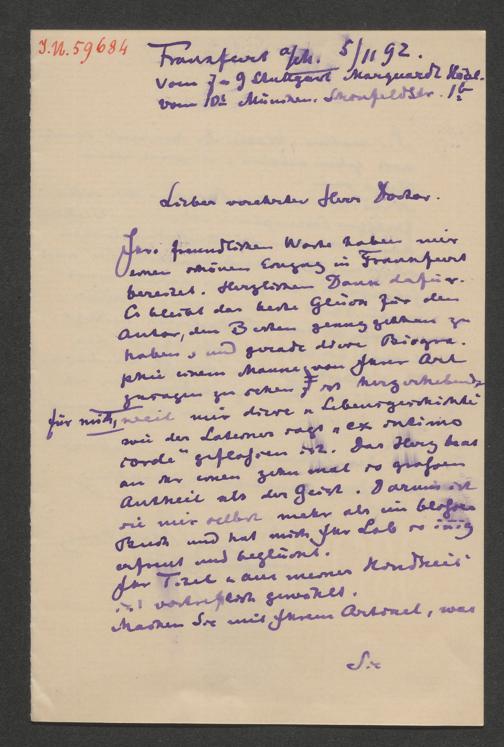 I.N. 59684
Frankfurt a/M. 5/11 92.
vom 7-9 Stuttgart Marquardt Hôtel.
vom 10t München. Schönfeldstr. 1b
Lieber verehrter Herr Doctor.
Ihre freundlichen Worte haben mir
einen schönen Eingang in Frankfurt
bereitet. Herzlichen Dank dafür.
Es bleibt das beste Glück für den
Autor, den Besten genuggethan zu
haben, und gerade diese Biogra-
phie einem Manne von Ihrer Art
zusagen zu sehen ist herzerhebend
für mich, weil mir diese „Lebensgeschichte
wie der Lateiner sagt „ex intimo
corde" geflossen ist. Das Herz hat
an ihr einen zehn mal so grossen
Antheil als der Geist. Darum ist
sie mir selbst mehr als ein blosses
Buch und hat mich Ihr Lob so innig
erfreut und beglückt.
Ihr Titel „aus meiner Kindheit"
ist vortrefflich gewählt.
Machen Sie mit Ihrem Artikel, was
Sie